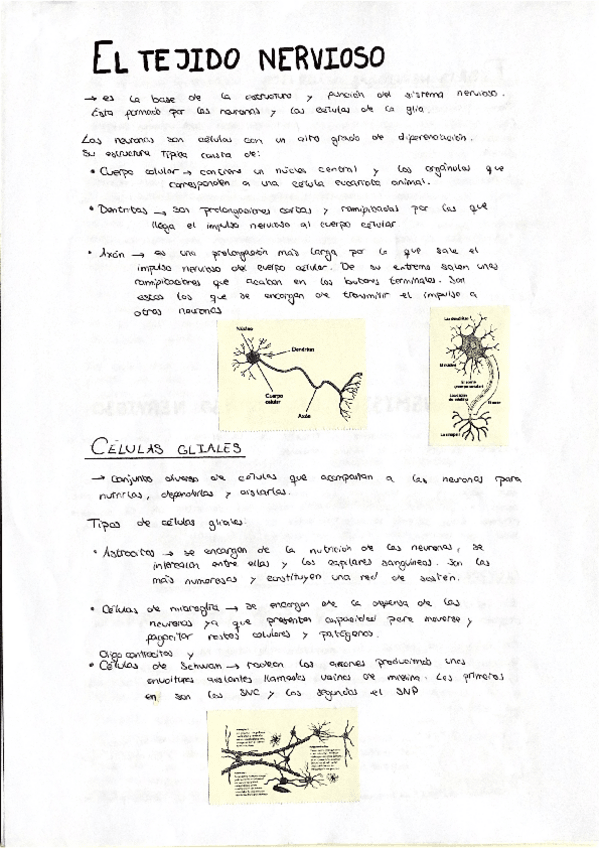 EL TEJIDO NERVIOSO
→ es la base de la estructura y función del sistema nervioso.
Esta formado por las neuronas y las células de la glia.
Las neuronas son células con un alto grado de diferenciación.
Su estructura típica consta de:
• Cuerpo celular → contiene un núcleo central y los orgánulos que
corresponden a una célula eucariota animal.
• Dendritas → son prolongaciones cortas y ramificadas por las que
llega el impulso nervioso al cuerpo celular
• Axón → es una prolongación más larga por la que sale el
impulso nervioso del cuerpo celular. De su extremo salen unas
ramificaciones que acaban en los botones terminales. Son
estos los que se encargan de transmitir el impulso a
otras neuronas
Núcleo
Dendritas
Cuerpo
celular
Axón
CÉLULAS GLIALES
→ Conjunto diverso de células que acompañan a las neuronas para
nutrirlas, defenderlas y aislarlas.
Tipos de células gliales:
• Astrocitos → se encargan de la nutrición de las neuronas, se
intercalan entre ellas y los capilares sanguíneos. Son las
más numerosas y constituyen una red de sostén.
• Células de microglía → se encargan de la defensa de las
neuronas ya que presentan capacidad para moverse y
fagocitar restos celulares y patógenos.
y
• Células de Schwan → rodean los axones produciendo unas
envolturas aislantes llamadas vainas de mielina. Los primeros
en son los SNC y los segundos el SNP